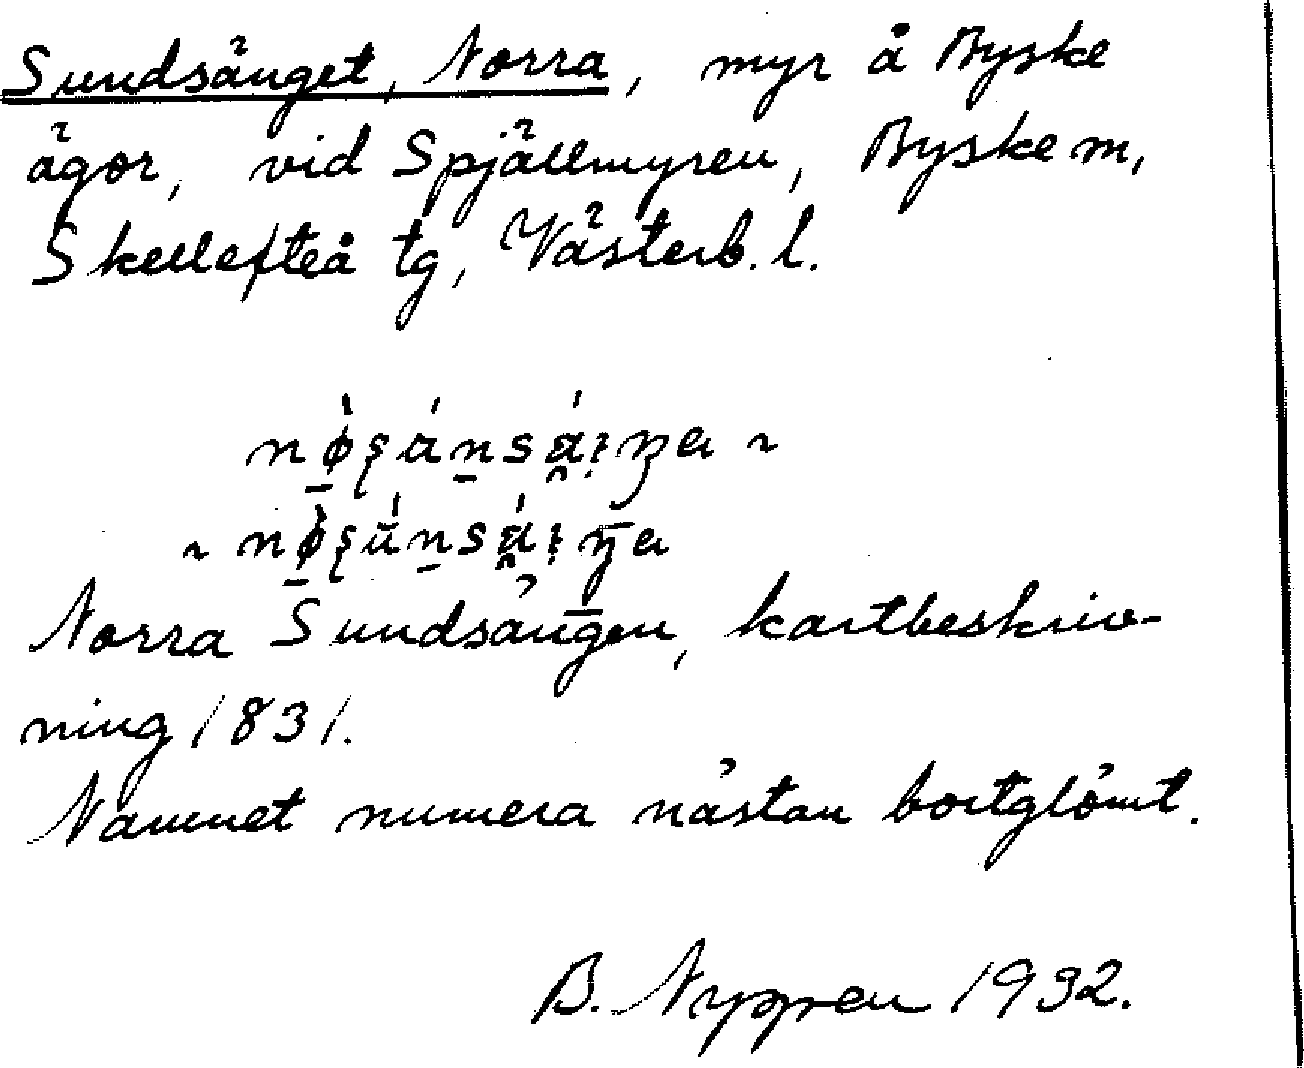 Sundsänget, Norra, myr å Byske
ägor, vid Spjällmyren, Byske m,
Skellefteå tg, Västerb. l.
Norra Sundsängen, kartbeskriv-
ning 1831.
Namnet numera nästan bortglömt.
B. Nygren 1932.